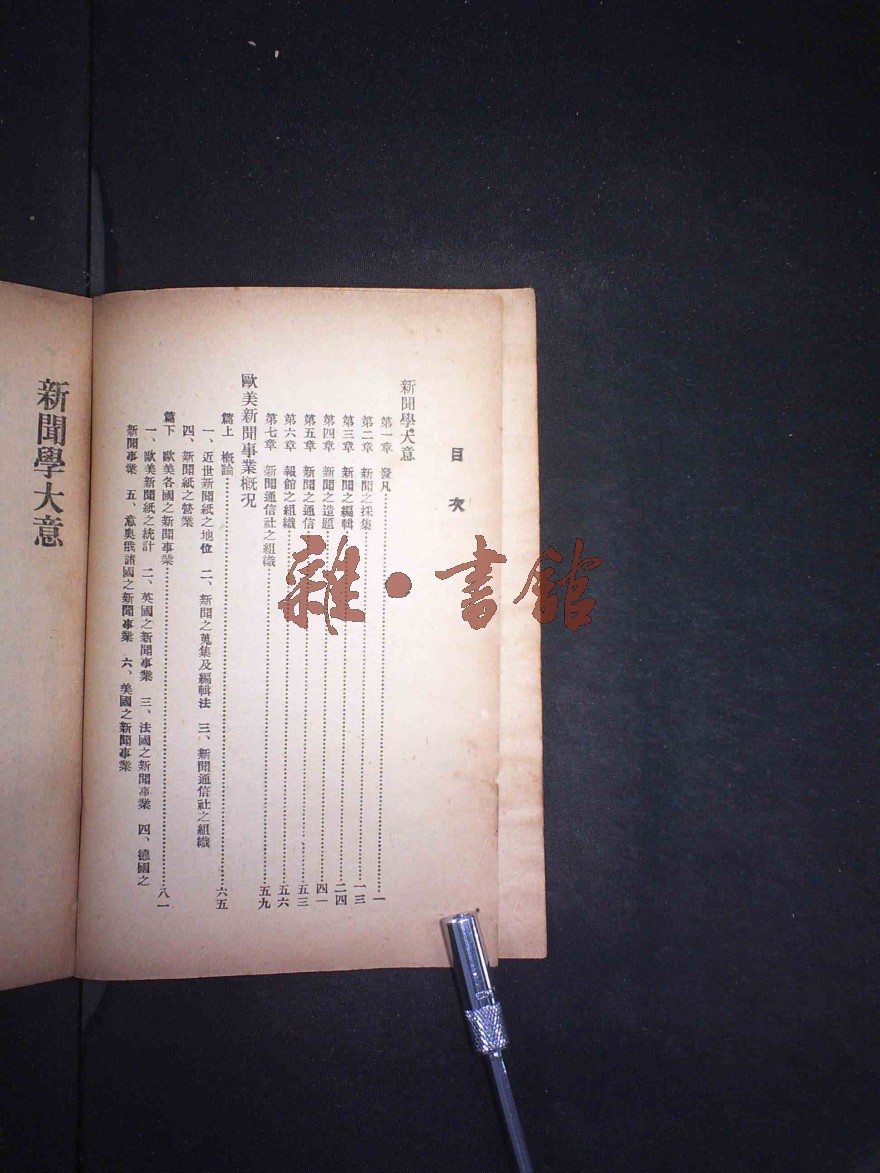 目次
新聞學大意
第一章 發凡 一
第二章 新聞之採集 一三
第三章 新聞之編輯 二四
第四章 新聞之造題 四一
第五章 新聞之通信 五三
第六章 報館之組織 五六
第七章 新聞通信社之組織 五九
歐美新聞事業概況
篇上 概論 六五
一、近世新聞紙之地位 二、新聞之蒐集及編輯法 三、新聞通信社之組織
四、新聞紙之營業
篇下 歐美各國之新聞事業 八一
一、歐美新聞紙之統計 二、英國之新聞事業 三、法國之新聞事業 四、德國之
新聞事業 五、意奧俄諸國之新聞事業 六、美國之新聞事業
新聞學大意
雜·書館